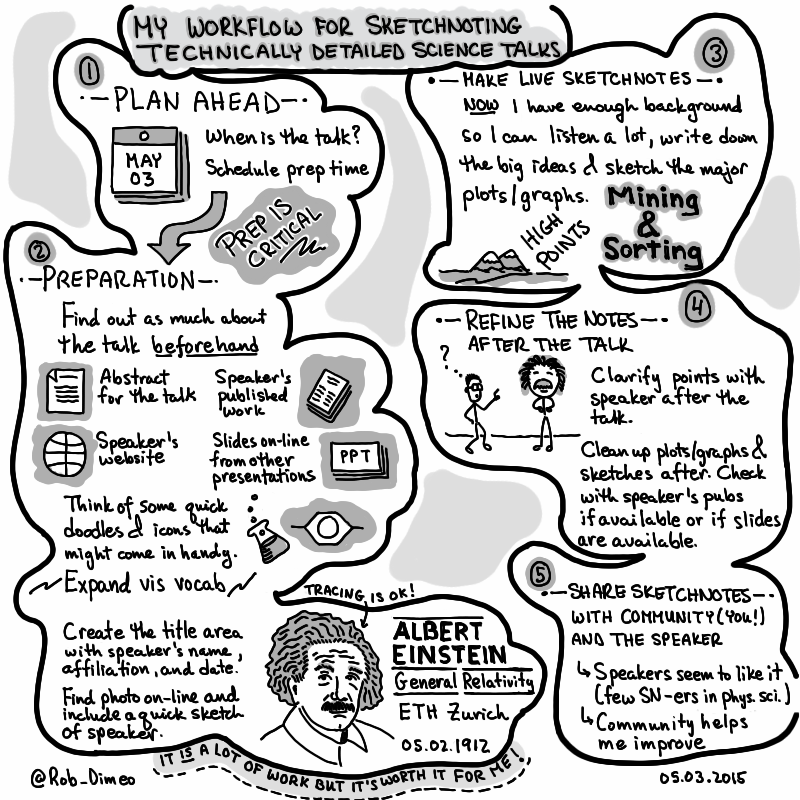 MY WORKFLOW FOR SKETCHNOTING
TECHNICALLY DETAILED SCIENCE TALKS
1
PLAN AHEAD
MAY
03
When is the talk?
Schedule prep time
PREP IS
CRITICAL
2
PREPARATION
Find out as much about
the talk beforehand
Abstract
for the talk
Speaker's
published
work
Speaker's
website
Slides on-line
from other
presentations
PPT
Think of some quick
doodles & icons that
might come in handy.
Expand vis vocab
Create the title area
with speaker's name,
affiliation, and date.
Find photo on-line and
include a quick sketch
of speaker.
TRACING IS OK!
ALBERT
EINSTEIN
General Relativity
ETH Zurich
05.02.1912
IT IS A LOT OF WORK BUT IT'S WORTH IT FOR ME!
3
MAKE LIVE SKETCHNOTES
NOW I have enough background
so I can listen a lot, write down
the big ideas & sketch the major
plots/graphs.
HIGH
POINTS
Mining
&
Sorting
4
REFINE THE NOTES
AFTER THE TALK
?
Clarify points with
speaker after the
talk.
Clean up plots/graphs &
sketches after. Check
with speaker's pubs
if available or if slides
are available.
5
SHARE SKETCHNOTES
WITH COMMUNITY (YOU!)
AND THE SPEAKER
Speakers seem to like it
(few SN-ers in phys. sci.)
Community helps
me improve
@Rob_Dimeo
05.03.2015